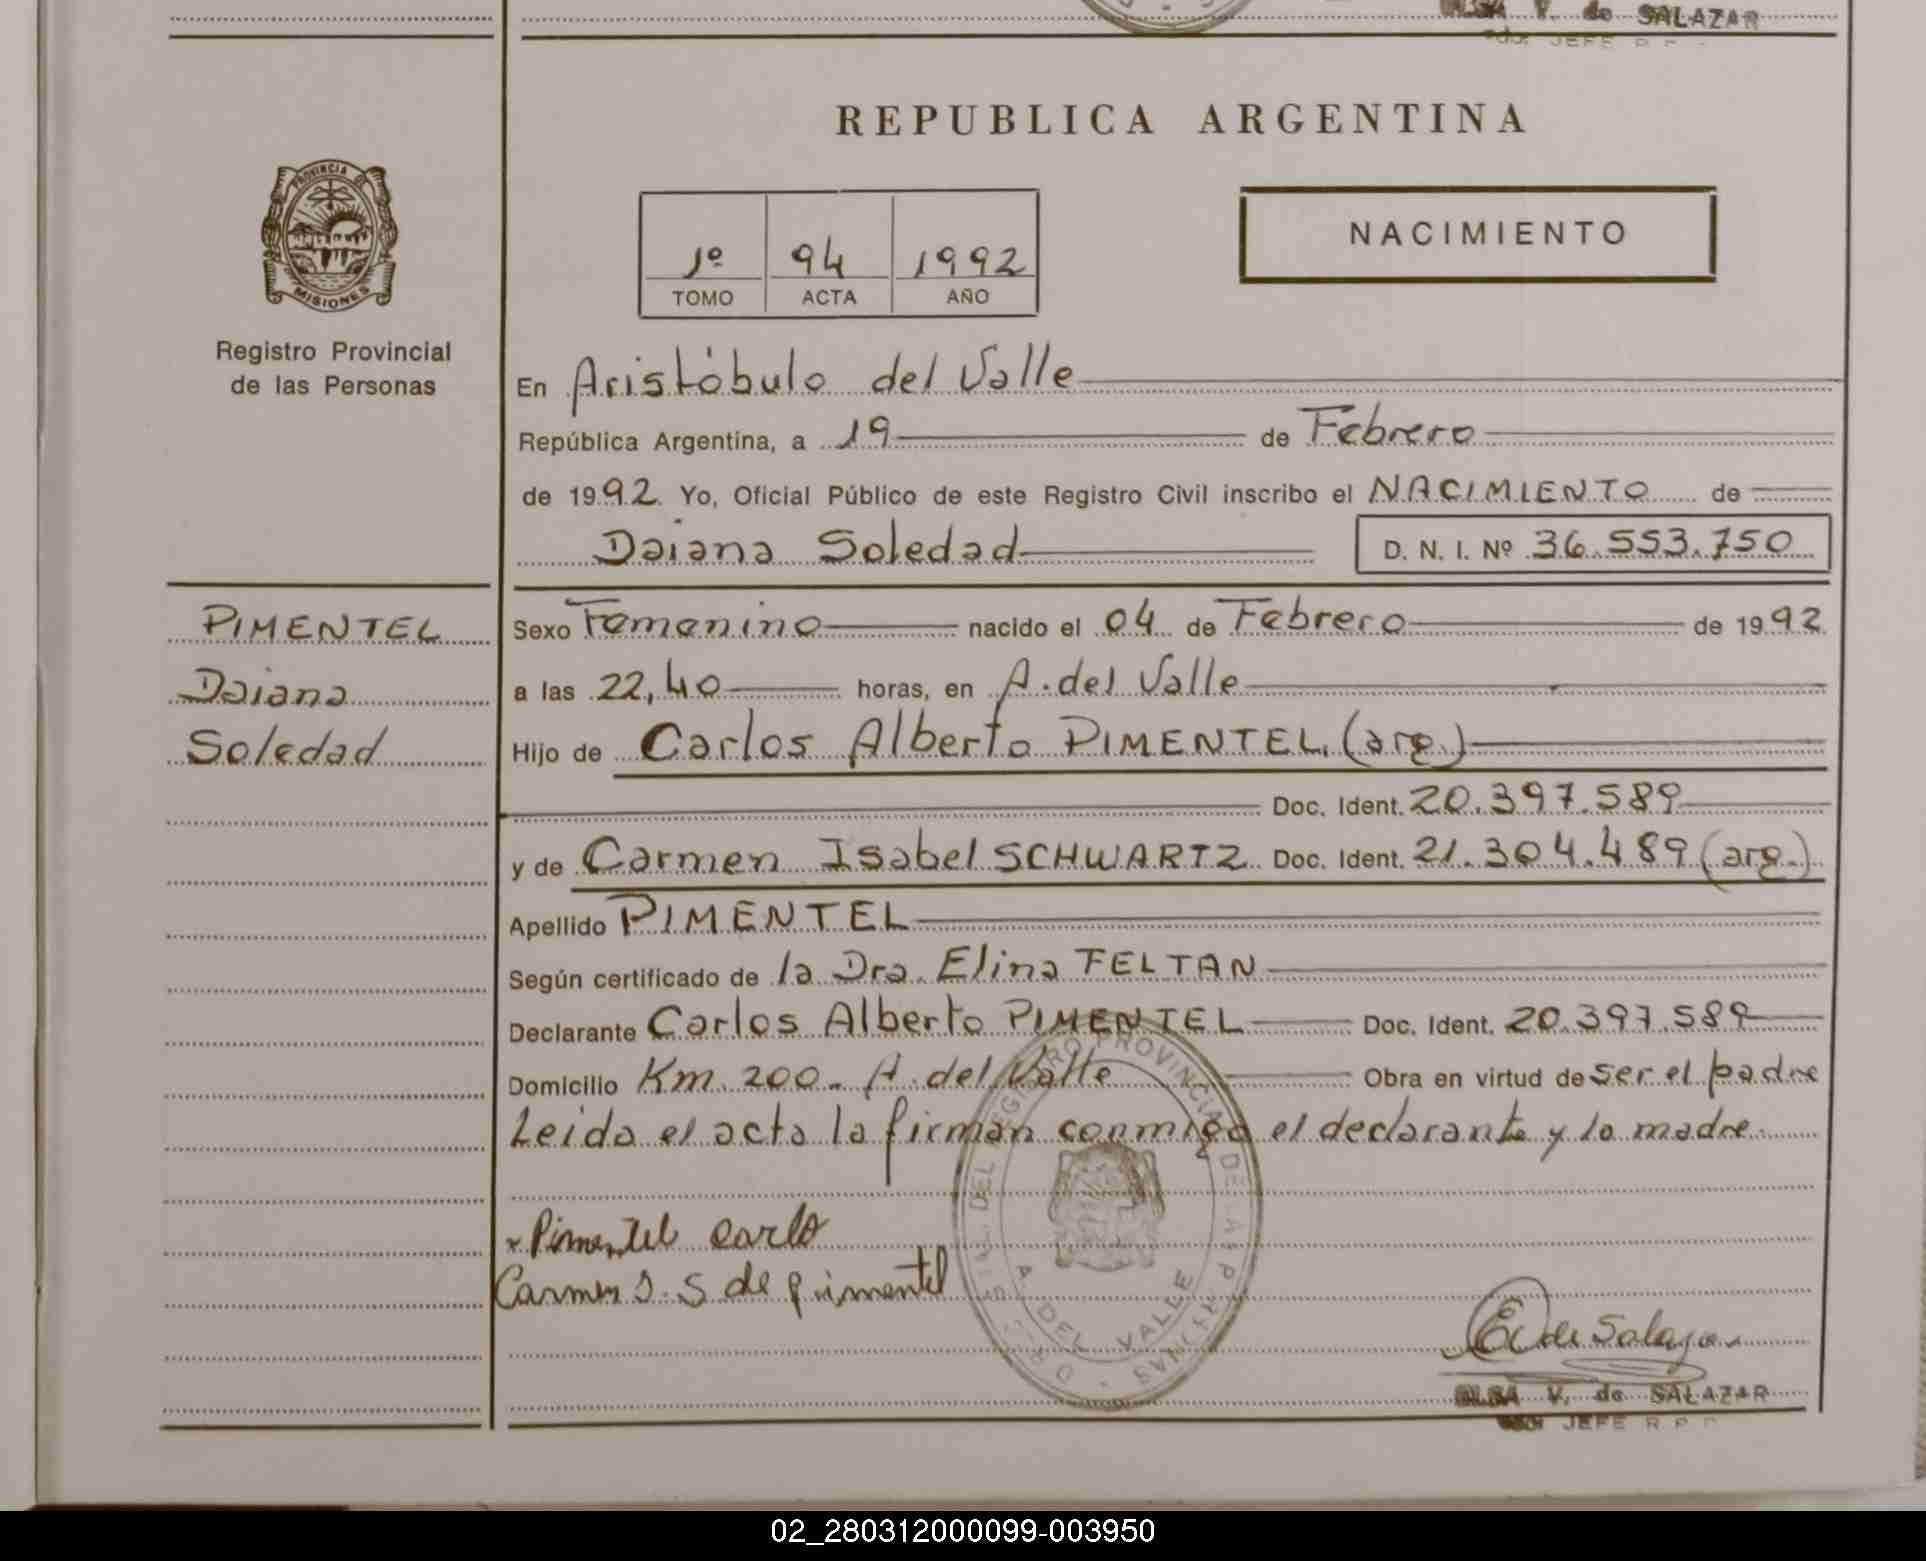 V. de SALAZAR
JEFE
REPUBLICA ARGENTINA
PROVINCIA DE
MISIONES
Registro Provincial
de las Personas
1º 94 1992
TOMO ACTA AÑO
NACIMIENTO
En Aristóbulo del Valle
República Argentina, a 19 de Febrero
de 1992 Yo, Oficial Público de este Registro Civil inscribo el NACIMIENTO de
Daiana Soledad D. N. I. Nº 36.553.750
PIMENTEL
Daiana
Soledad
Sexo Femenino nacido el 04 de Febrero de 1992
a las 22,40 horas, en A. del Valle
Hijo de Carlos Alberto PIMENTEL (arg.)
Doc. Ident. 20.397.589
y de Carmen Isabel SCHWARTZ Doc. Ident. 21.304.489 (arg.)
Apellido PIMENTEL
Según certificado de la Dra. Elina FELTAN
Declarante Carlos Alberto PIMENTEL Doc. Ident. 20.397.589
Domicilio Km. 200 - A. del Valle Obra en virtud de ser el padre
Leida el acta la firman conmigo el declarante y la madre
DEL REGISTRO PROVINCIAL DE LAS PERSONAS
A. DEL VALLE
Pimentel Carlo
Carmen I. S de pimentel
E de Salazar
V. de SALAZAR
JEFE R. P.
02_280312000099-003950